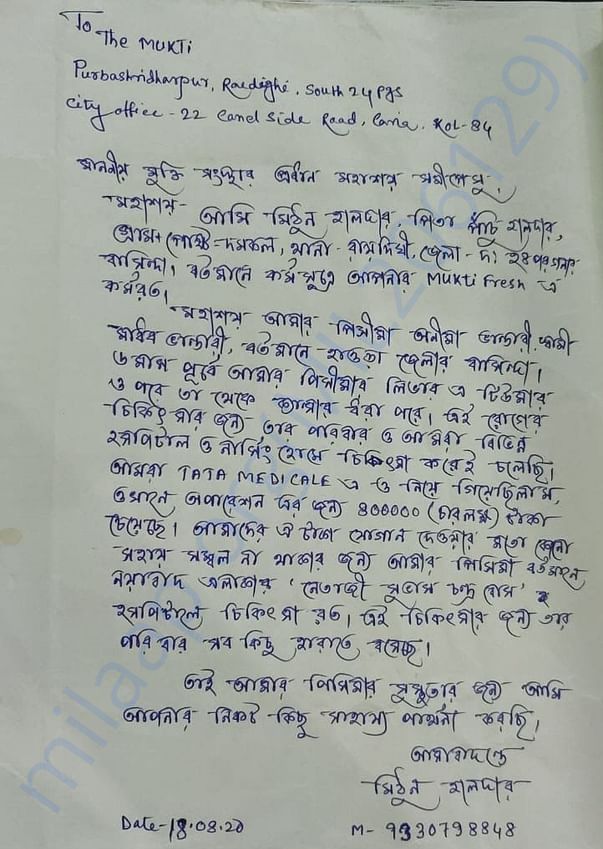 To
The MUKTI
Purbashridharpur, Raidighi, South 24 Pgs
City office - 22 Canel Side Road, Garia, KOL-84
মাননীয় মুক্তি সংস্থার প্রধান মহাশয় সমীপেষু,
মহাশয়- আমি মিঠুন হালদার, পিতা পাঁচু হালদার,
গ্রাম+পোষ্ট-দমকল, থানা-রায়দিঘী, জেলা-দঃ ২৪ পরগনার
বাসিন্দা। বর্তমানে কর্মসূত্রে আপনার Mukti Fresh এ
কর্মরত।
মহাশয় আমার পিসীমা অনীমা ভান্ডারী, স্বামী
মাধব ভান্ডারী, বর্তমানে-হাওড়া জেলার বাসিন্দা।
৬ মাস পূর্বে আমার পিসীমার লিভার এ টিউমার
ও পরে তা থেকে ক্যান্সার ধরা পরে। এই রোগের
চিকিৎসার জন্য তার পরিবার ও আমরা বিভিন্ন
হসপিটাল ও নার্সিং হোমে চিকিৎসা করেই চলেছি।
আমরা TATA MEDICALE এ ও নিয়ে গিয়েছিলাম,
ওখানে অপারেশন এর জন্য 400000 (চারলক্ষ) টাকা
চেয়েছে। আমাদের এ টাকা যোগান দেওয়ার মতো কোনো
সহায় সম্বল না থাকার জন্য আমার পিসিমা বর্তমানে
নয়াবাদ এলাকার 'নেতাজী সুভাস চন্দ্র বোস'
হসপিটালে চিকিৎসা রত। এই চিকিৎসার জন্য তার
পরিবার সব কিছু হারাতে বসেছে।
তাই আমার পিসিমার সুস্থতার জন্য আমি
আপনার নিকট কিছু সাহায্য পার্থনা করছি।
মিঠুন হালদার
Date-18.08.20 M- 9330798848